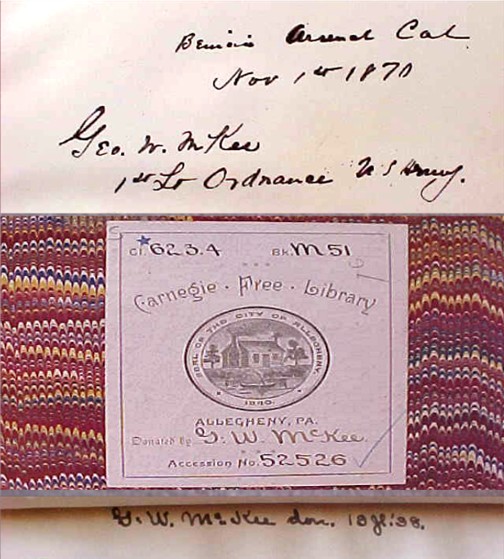 Benicia Arsenal Cal
Nov 1st 1870
Geo. W. McKee
1st Lt Ordnance U S Army.
Cl. 623.4 Bk. M51
Carnegie · Free · Library
SEAL OF THE CITY OF ALLEGHENY.
1840.
ALLEGHENY, PA.
Donated by G. W. McKee
Accession No. 52526
G. W. McKee don.